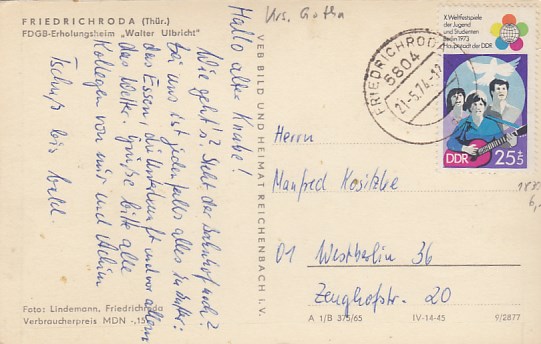 FRIEDRICHRODA (Thür.)
FDGB-Erholungsheim „Walter Ulbricht"
Hallo alter Knabe!
Wie geht's? Steht der Bahnhof noch?
Bei uns ist jedenfalls alles in Butter:
das Essen, die Unterkunft und vor allem
das Wetter. Grüße bitte alle
Kollegen von mir und Achim
Tschüß bis bald.
Foto: Lindemann, Friedrichroda
Verbraucherpreis MDN -,15
VEB BILD UND HEIMAT REICHENBACH i. V.
Krs. Gotha
FRIEDRICHRODA
5804
21-5.74-
X. Weltfestspiele
der Jugend
und Studenten
Berlin 1973
Hauptstadt der DDR
DDR 25+5
Herrn
Manfred Kositzke
01 Westberlin 36
Zeughofstr. 20
A 1/B 375/65 IV-14-45 9/2877
6,-